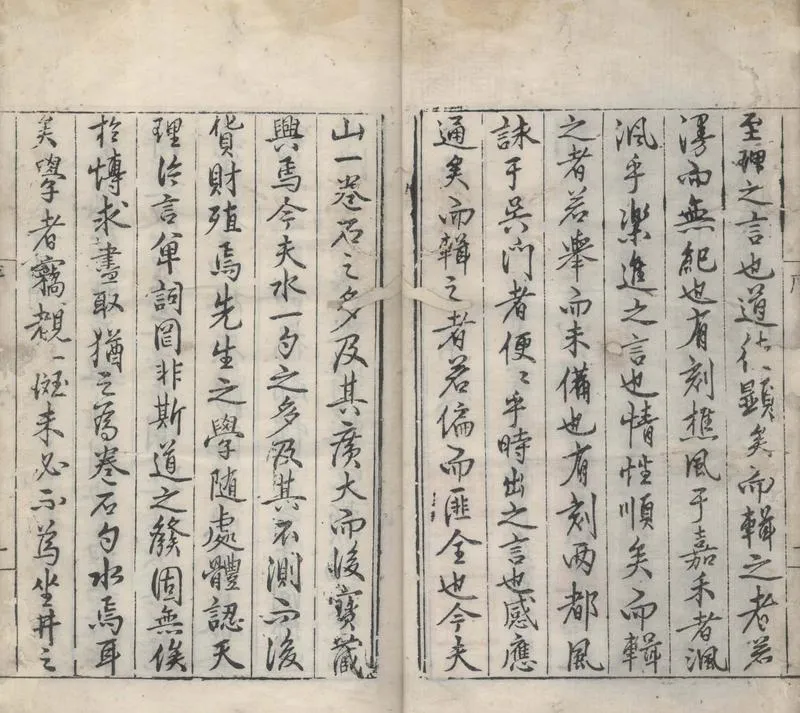 至理之言也道体顯矣而輯之者若
漫而無紀也有刻樵風于嘉禾者渢
渢乎樂進之言也情性順矣而輯
之者若舉而未備也有刻兩都風
詠于吳門者便〻乎時出之言也感應
通矣而輯之者若偏而匪全也今夫
山一卷石之多及其廣大而後寶藏
興焉今夫水一勺之多及其不測而後
貨財殖焉先生之學随處體認天
理片言單詞罔非斯道之發固無俟
於慱求盡取猶之為卷石勺水焉耳
矣學者竊覩一斑未必不為坐井之